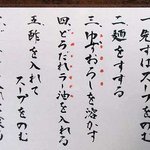 一、先ずはスープをのむ
二、麺をすする
三、ゆずおろしを溶かす
四、ごまだれラー油を入れる
五、酢を入れて
スープをのむ